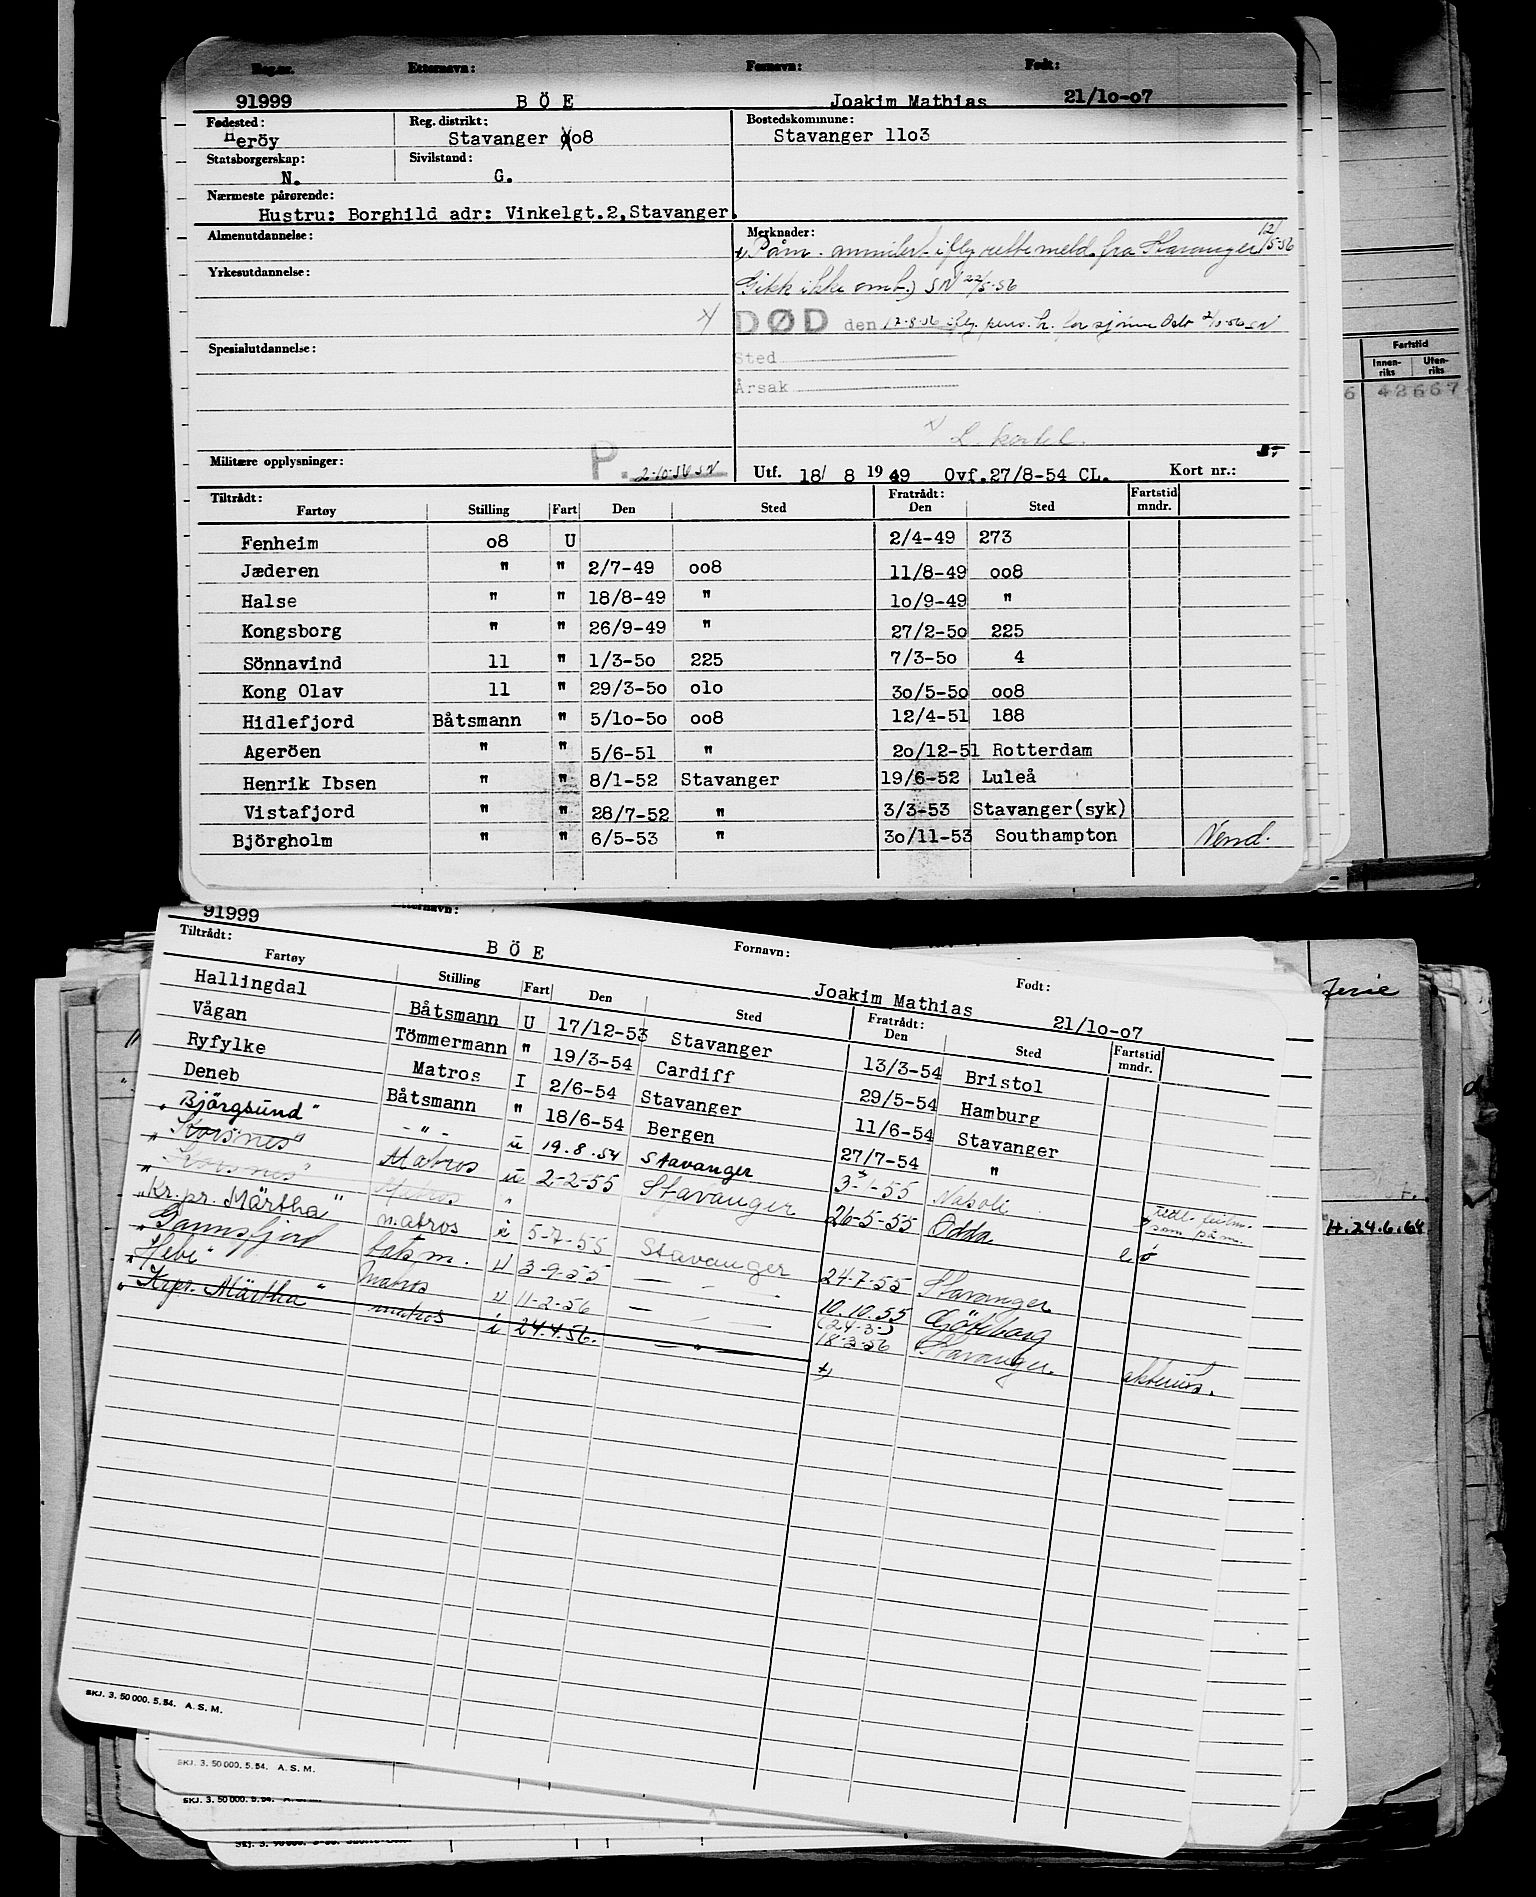 Reg.nr. Etternavn: Fornavn: Født:
91999 B Ö E Joakim Mathias 21/1o-o7
Fødested: Reg. distrikt: Bostedskommune:
Heröy Stavanger oo8 Stavanger 11o3
Statsborgerskap: Sivilstand:
N. G.
Nærmeste pårørende:
Hustru: Borghild adr: Vinkelgt.2,Stavanger.
Almenutdannelse: Merknader:
x) Påm. annulert iflg rettemeld. fra Stavanger 12/5-56
Yrkesutdannelse:
Gikk ikke omb.) SN 22/5-56
DØD den 12-8-56 iflg. pers. k. for sjömenn Oslo 2/10-56 SN
Spesialutdannelse: Sted
Årsak
Militære opplysninger: P. 2-10-56 SN Utf. 18/ 8 1949 Ovf.27/8-54 CL. Kort nr.:
Tiltrådt: Fratrådt: Fartstid
Fartøy Stilling Fart Den Sted Den Sted mndr.
Fenheim o8 U 2/4-49 273
Jæderen " " 2/7-49 oo8 11/8-49 oo8
Halse " " 18/8-49 " 1o/9-49 "
Kongsborg " " 26/9-49 " 27/2-5o 225
Sönnavind 11 " 1/3-5o 225 7/3-5o 4
Kong Olav 11 " 29/3-5o o1o 3o/5-5o oo8
Hidlefjord Båtsmann " 5/1o-5o oo8 12/4-51 188
Ageröen " " 5/6-51 " 2o/12-51 Rotterdam
Henrik Ibsen " " 8/1-52 Stavanger 19/6-52 Luleå
Vistafjord " " 28/7-52 " 3/3-53 Stavanger(syk)
Björgholm " " 6/5-53 " 3o/11-53 Southampton Vend.
Fartstid
Innen-riks Uten-riks
6 42667
91999 Etternavn: B Ö E Fornavn: Joakim Mathias Født: 21/1o-o7
Tiltrådt: Fratrådt: Fartstid
Fartøy Stilling Fart Den Sted Den Sted mndr.
Hallingdal Båtsmann U 17/12-53 Stavanger 13/3-54 Bristol
Vågan Tömmermann " 19/3-54 Cardiff 29/5-54 Hamburg
Ryfylke Matros I 2/6-54 Stavanger 11/6-54 Stavanger
Deneb Båtsmann " 18/6-54 Bergen 27/7-54 "
"Björgsund" - " - u 19.8.54 Stavanger 3-1-55 Napoli
"Korsnes" Matros u 2-2-55 Stavanger 26-5-55 Odda
"Korsnes" Matros "
"Kr.pr. Märtha" matros i 5-7-55 Stavanger 24-7-55 Stavanger
"Gannsfjord båtsm. u 3-9-55 — " — 10.10.55 Göteborg
"Hebe" Matros u 11-2-56 — " — (24-3-) 18-3-56 Stavanger
"Krpr. Märtha" matros i 24.4.56. — " — x)
H.24.6.64
SKJ. 3. 50 000. 5. 54. A. S. M.
SKJ. 3. 50 000. 5. 54. A. S. M.